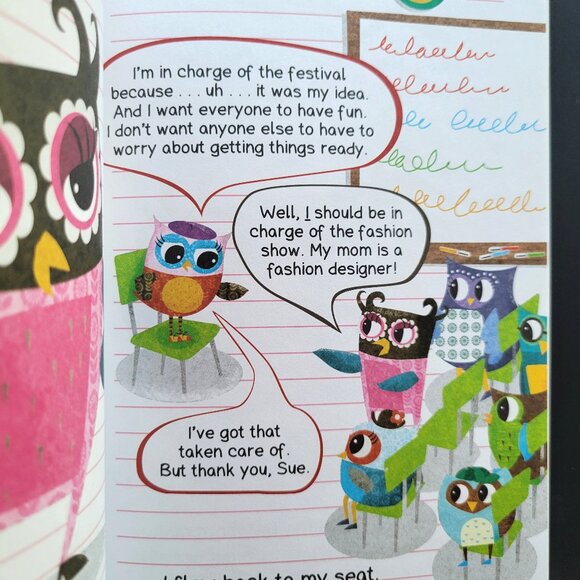 I'm in charge of the festival
because . . . uh . . . it was my idea.
And I want everyone to have fun.
I don't want anyone else to have to
worry about getting things ready.
Well, I should be in
charge of the fashion
show. My mom is a
fashion designer!
I've got that
taken care of.
But thank you, Sue.
I flew back to my seat.